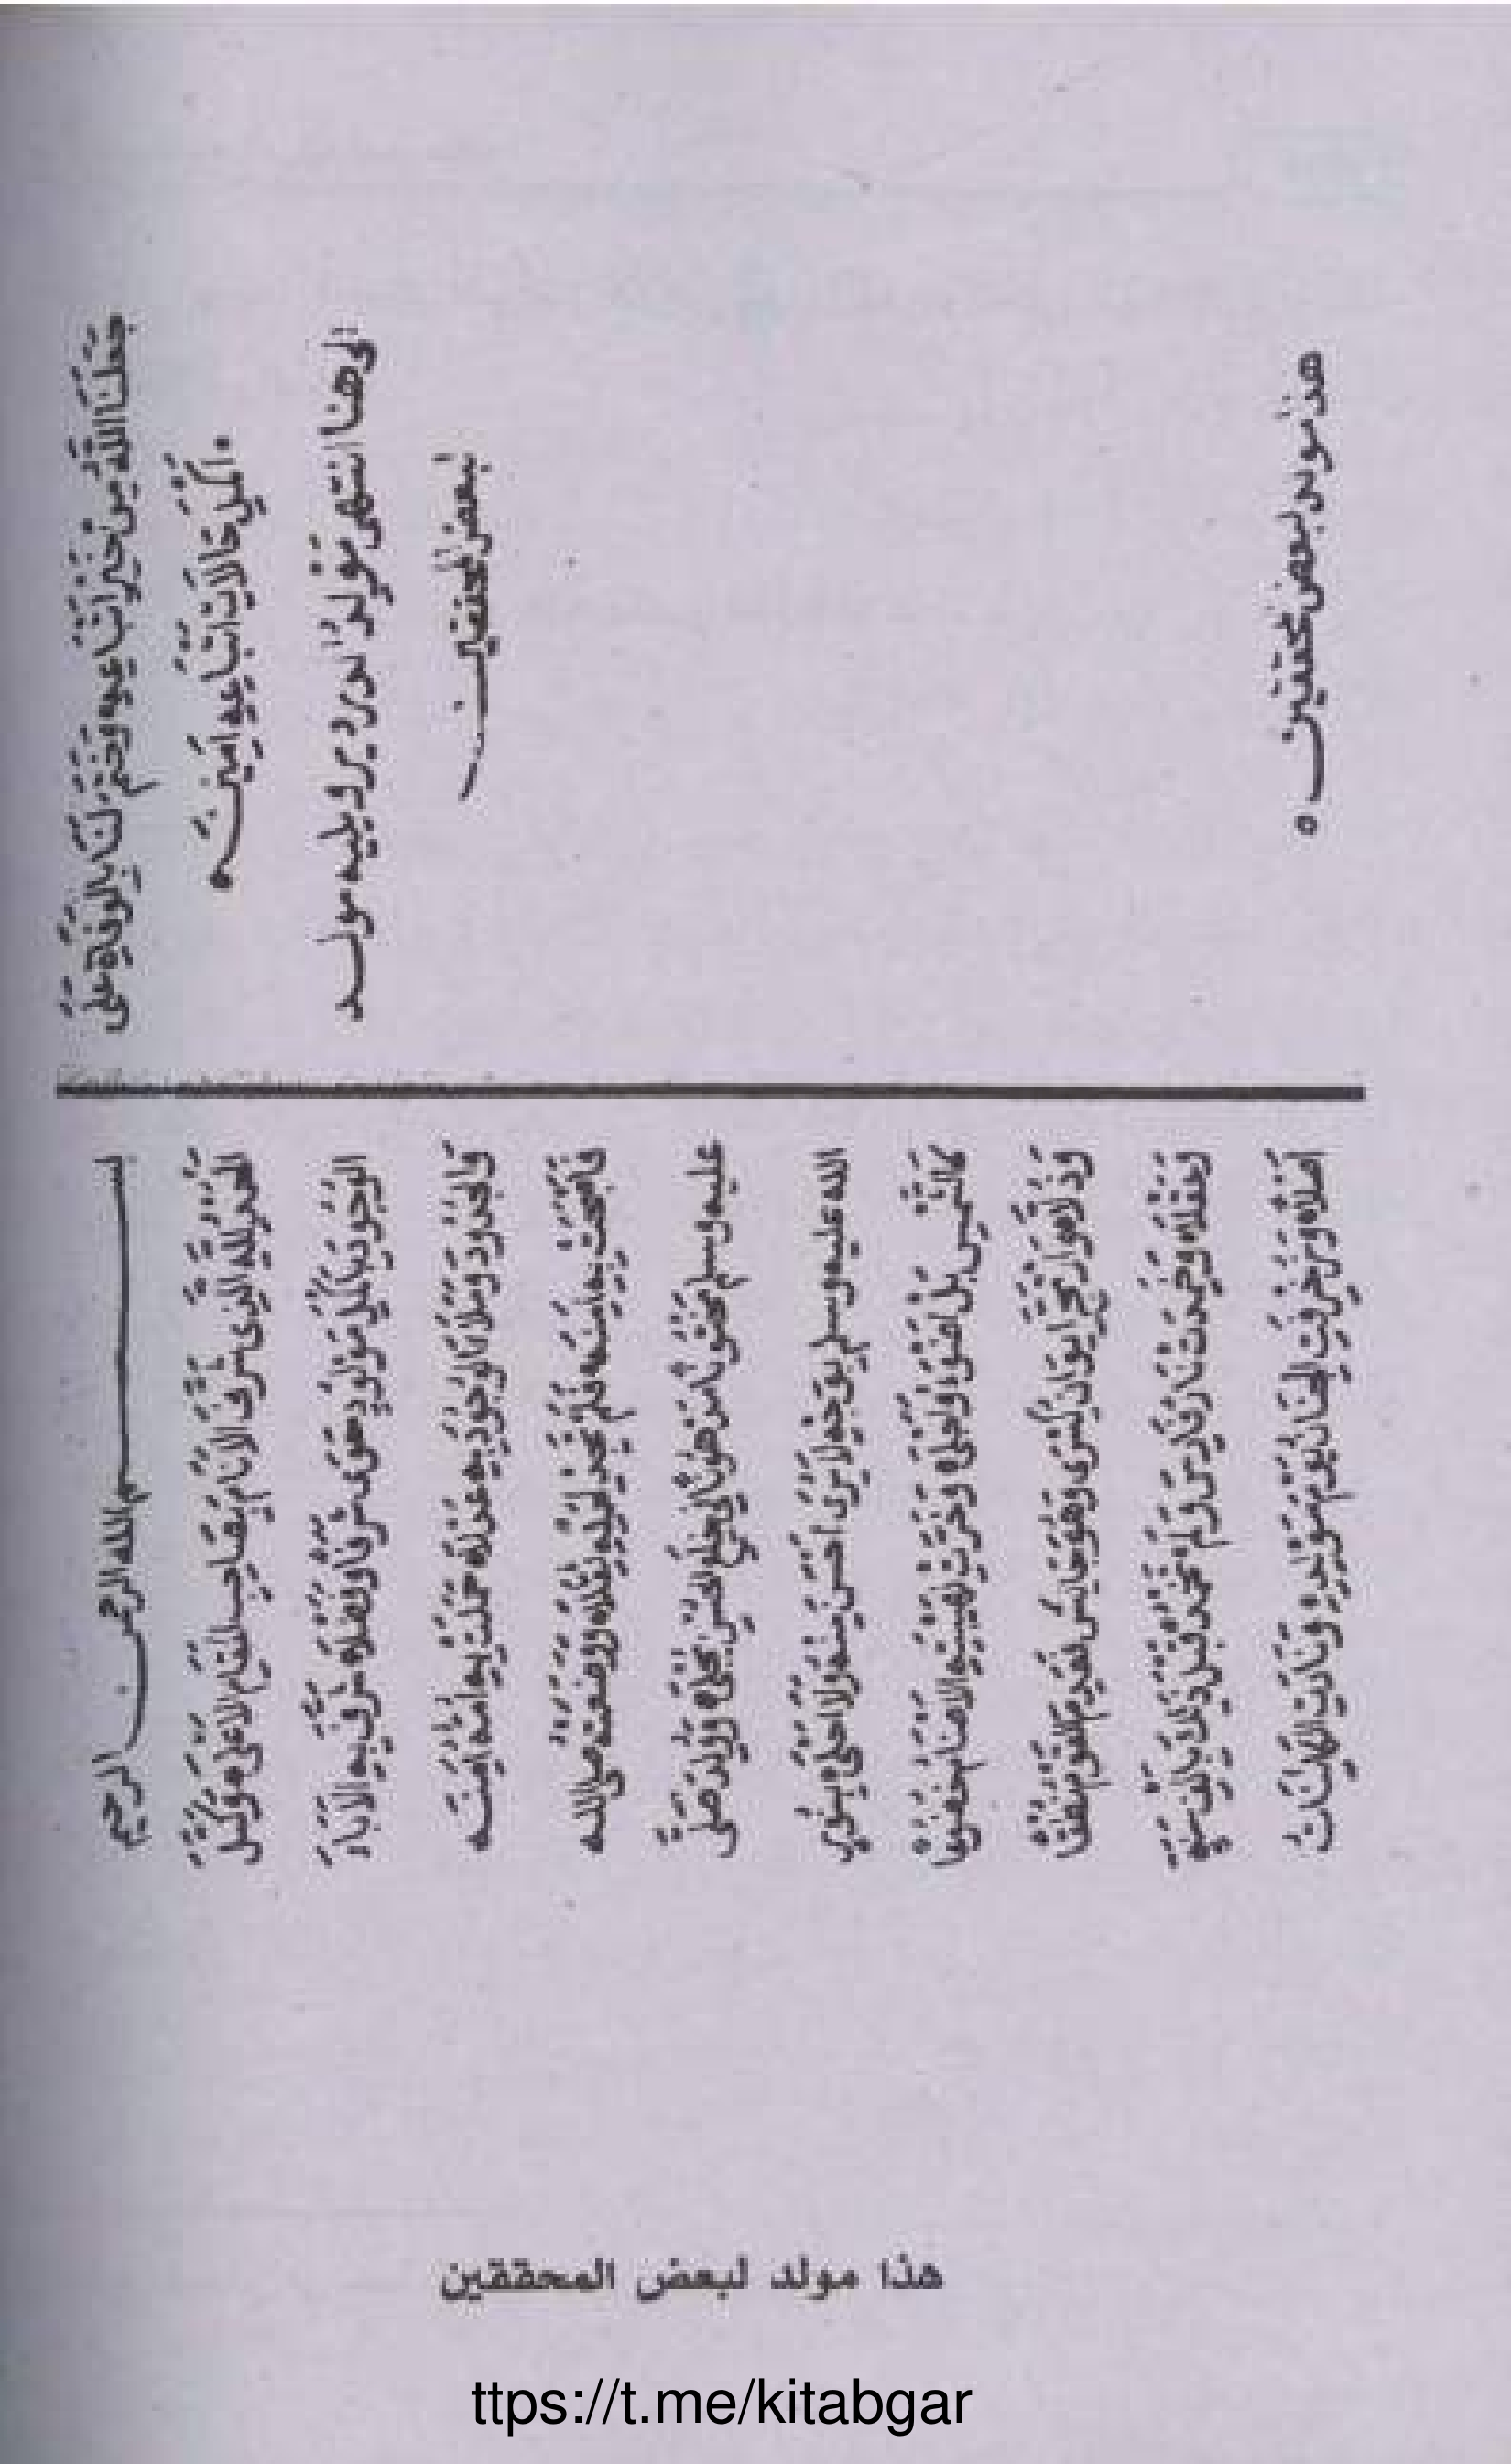 جَعَلَنَا اللّٰهُ مِنْ خَيْرِ اَتْبَاعِهِ وَخَتَمَ لَنَا بِالْوَفَاةِ عَلَى
اَكْمَلِ حَالَاتِ اَتْبَاعِهِ اٰمِيْنَ
الى هنا انتهى مولد الدردير ويليه مولد
لبعض المحققين
هذا مولد لبعض محققين
بسم الله الرحمن الرحيم
الحمد لله الذي شرف الانام بصاحب المقام الاعلى وكمل
الوجود باكمل مولود حوى شرفا وفضلا شرف به الاباء
والجدود وملأ الوجود به عدلا حملت به امه امنه
فاصبحت به امنه فلم تجد لحمله ثقلا ووضعته صلى الله
عليه وسلم مختونا في وولد صلى
الله عليه وسلم بوجه لا يرى احسن منه ولا احلى بنور
كالشمس بل اضوا واجلى وخرت لهيبته الاصنام خضوعا
وذلا وارتج ايوان كسرى وهو جالس
وعقلا وخمدت نار فارس ولم تخمد قبل ذلك بالف سنة
اصلا وزخرفت الجنان ليوم مولده ونادت الكائنات
هذا مولد لبعض المحققين
ttps://t.me/kitabgar